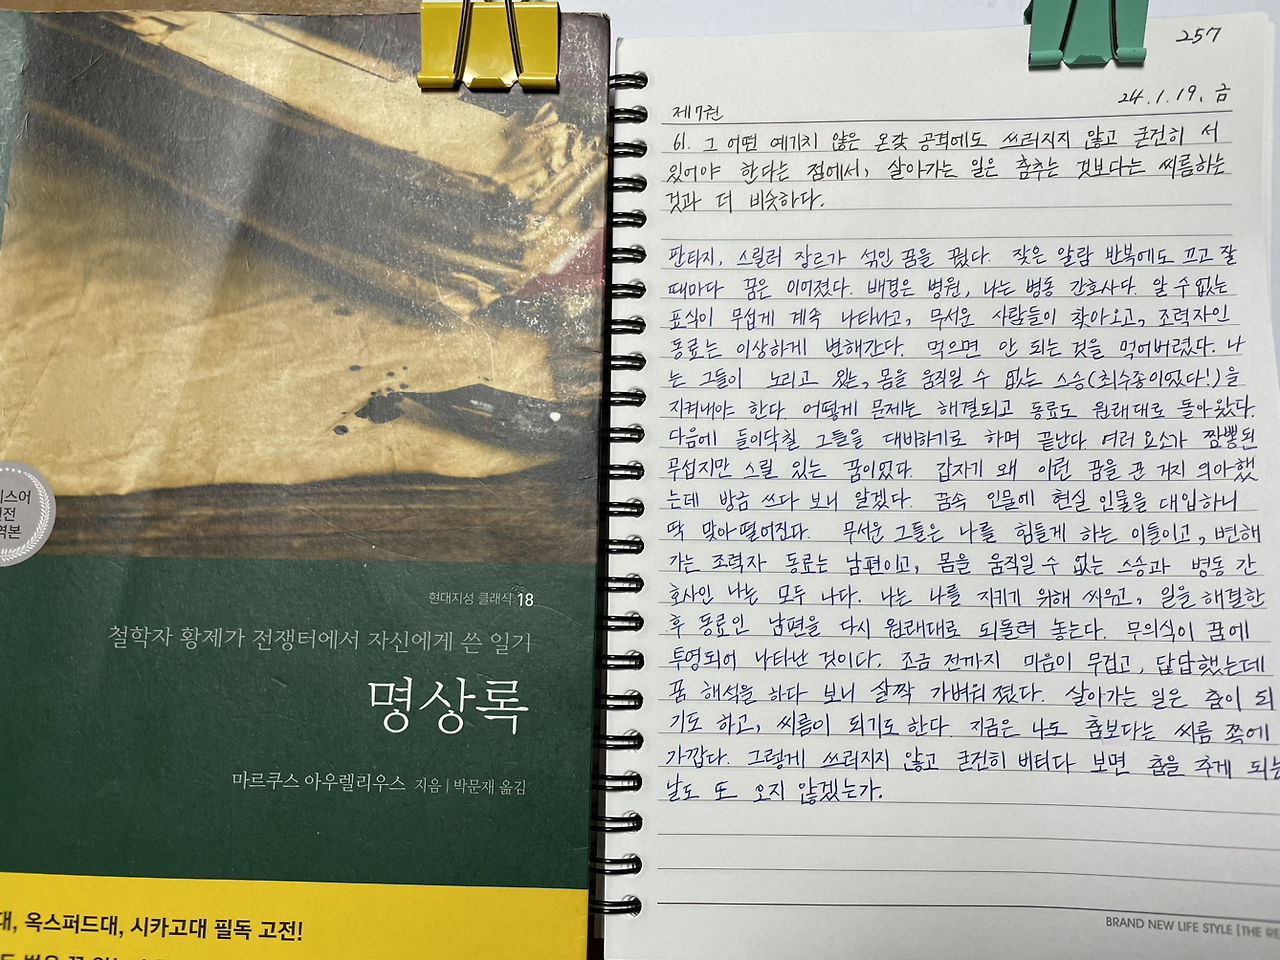 리스어
원전
역본
현대지성 클래식 18
철학자 황제가 전쟁터에서 자신에게 쓴 일기
명상록
마르쿠스 아우렐리우스 지음 | 박문재 옮김
대, 옥스퍼드대, 시카고대 필독 고전!
257
24.1.19. 금
제7권
61. 그 어떤 예기치 않은 온갖 공격에도 쓰러지지 않고 굳건히 서
있어야 한다는 점에서, 살아가는 일은 춤추는 것보다는 씨름하는
것과 더 비슷하다.
판타지, 스릴러 장르가 섞인 꿈을 꿨다. 잦은 알람 반복에도 끄고 잘
때마다 꿈은 이어졌다. 배경은 병원, 나는 병동 간호사다. 알 수 없는
표식이 무섭게 계속 나타나고, 무서운 사람들이 찾아오고, 조력자인
동료는 이상하게 변해간다. 먹으면 안 되는 것을 먹어버렸다. 나
는 그들이 노리고 있는, 몸을 움직일 수 없는 스승(최수종이었다!)을
지켜내야 한다. 어떻게 문제는 해결되고 동료도 원래대로 돌아왔다.
다음에 들이닥칠 그들을 대비하기로 하며 끝난다. 여러 요소가 짬뽕된
무섭지만 스릴 있는 꿈이었다. 갑자기 왜 이런 꿈을 꾼 거지 의아했
는데 방금 쓰다 보니 알겠다. 꿈속 인물에 현실 인물을 대입하니
딱 맞아 떨어진다. 무서운 그들은 나를 힘들게 하는 이들이고, 변해
가는 조력자 동료는 남편이고, 몸을 움직일 수 없는 스승과 병동 간
호사인 나는 모두 나다. 나는 나를 지키기 위해 싸우고, 일을 해결한
후 동료인 남편을 다시 원래대로 되돌려 놓는다. 무의식이 꿈에
투영되어 나타난 것이다. 조금 전까지 마음이 무겁고, 답답했는데
꿈 해석을 하다 보니 살짝 가벼워졌다. 살아가는 일은 춤이 되
기도 하고, 씨름이 되기도 한다. 지금은 나도 춤보다는 씨름 쪽에
가깝다. 그렇게 쓰러지지 않고 굳건히 버티다 보면 춤을 추게 되는
날도 또 오지 않겠는가.
BRAND NEW LIFE STYLE [THE RE